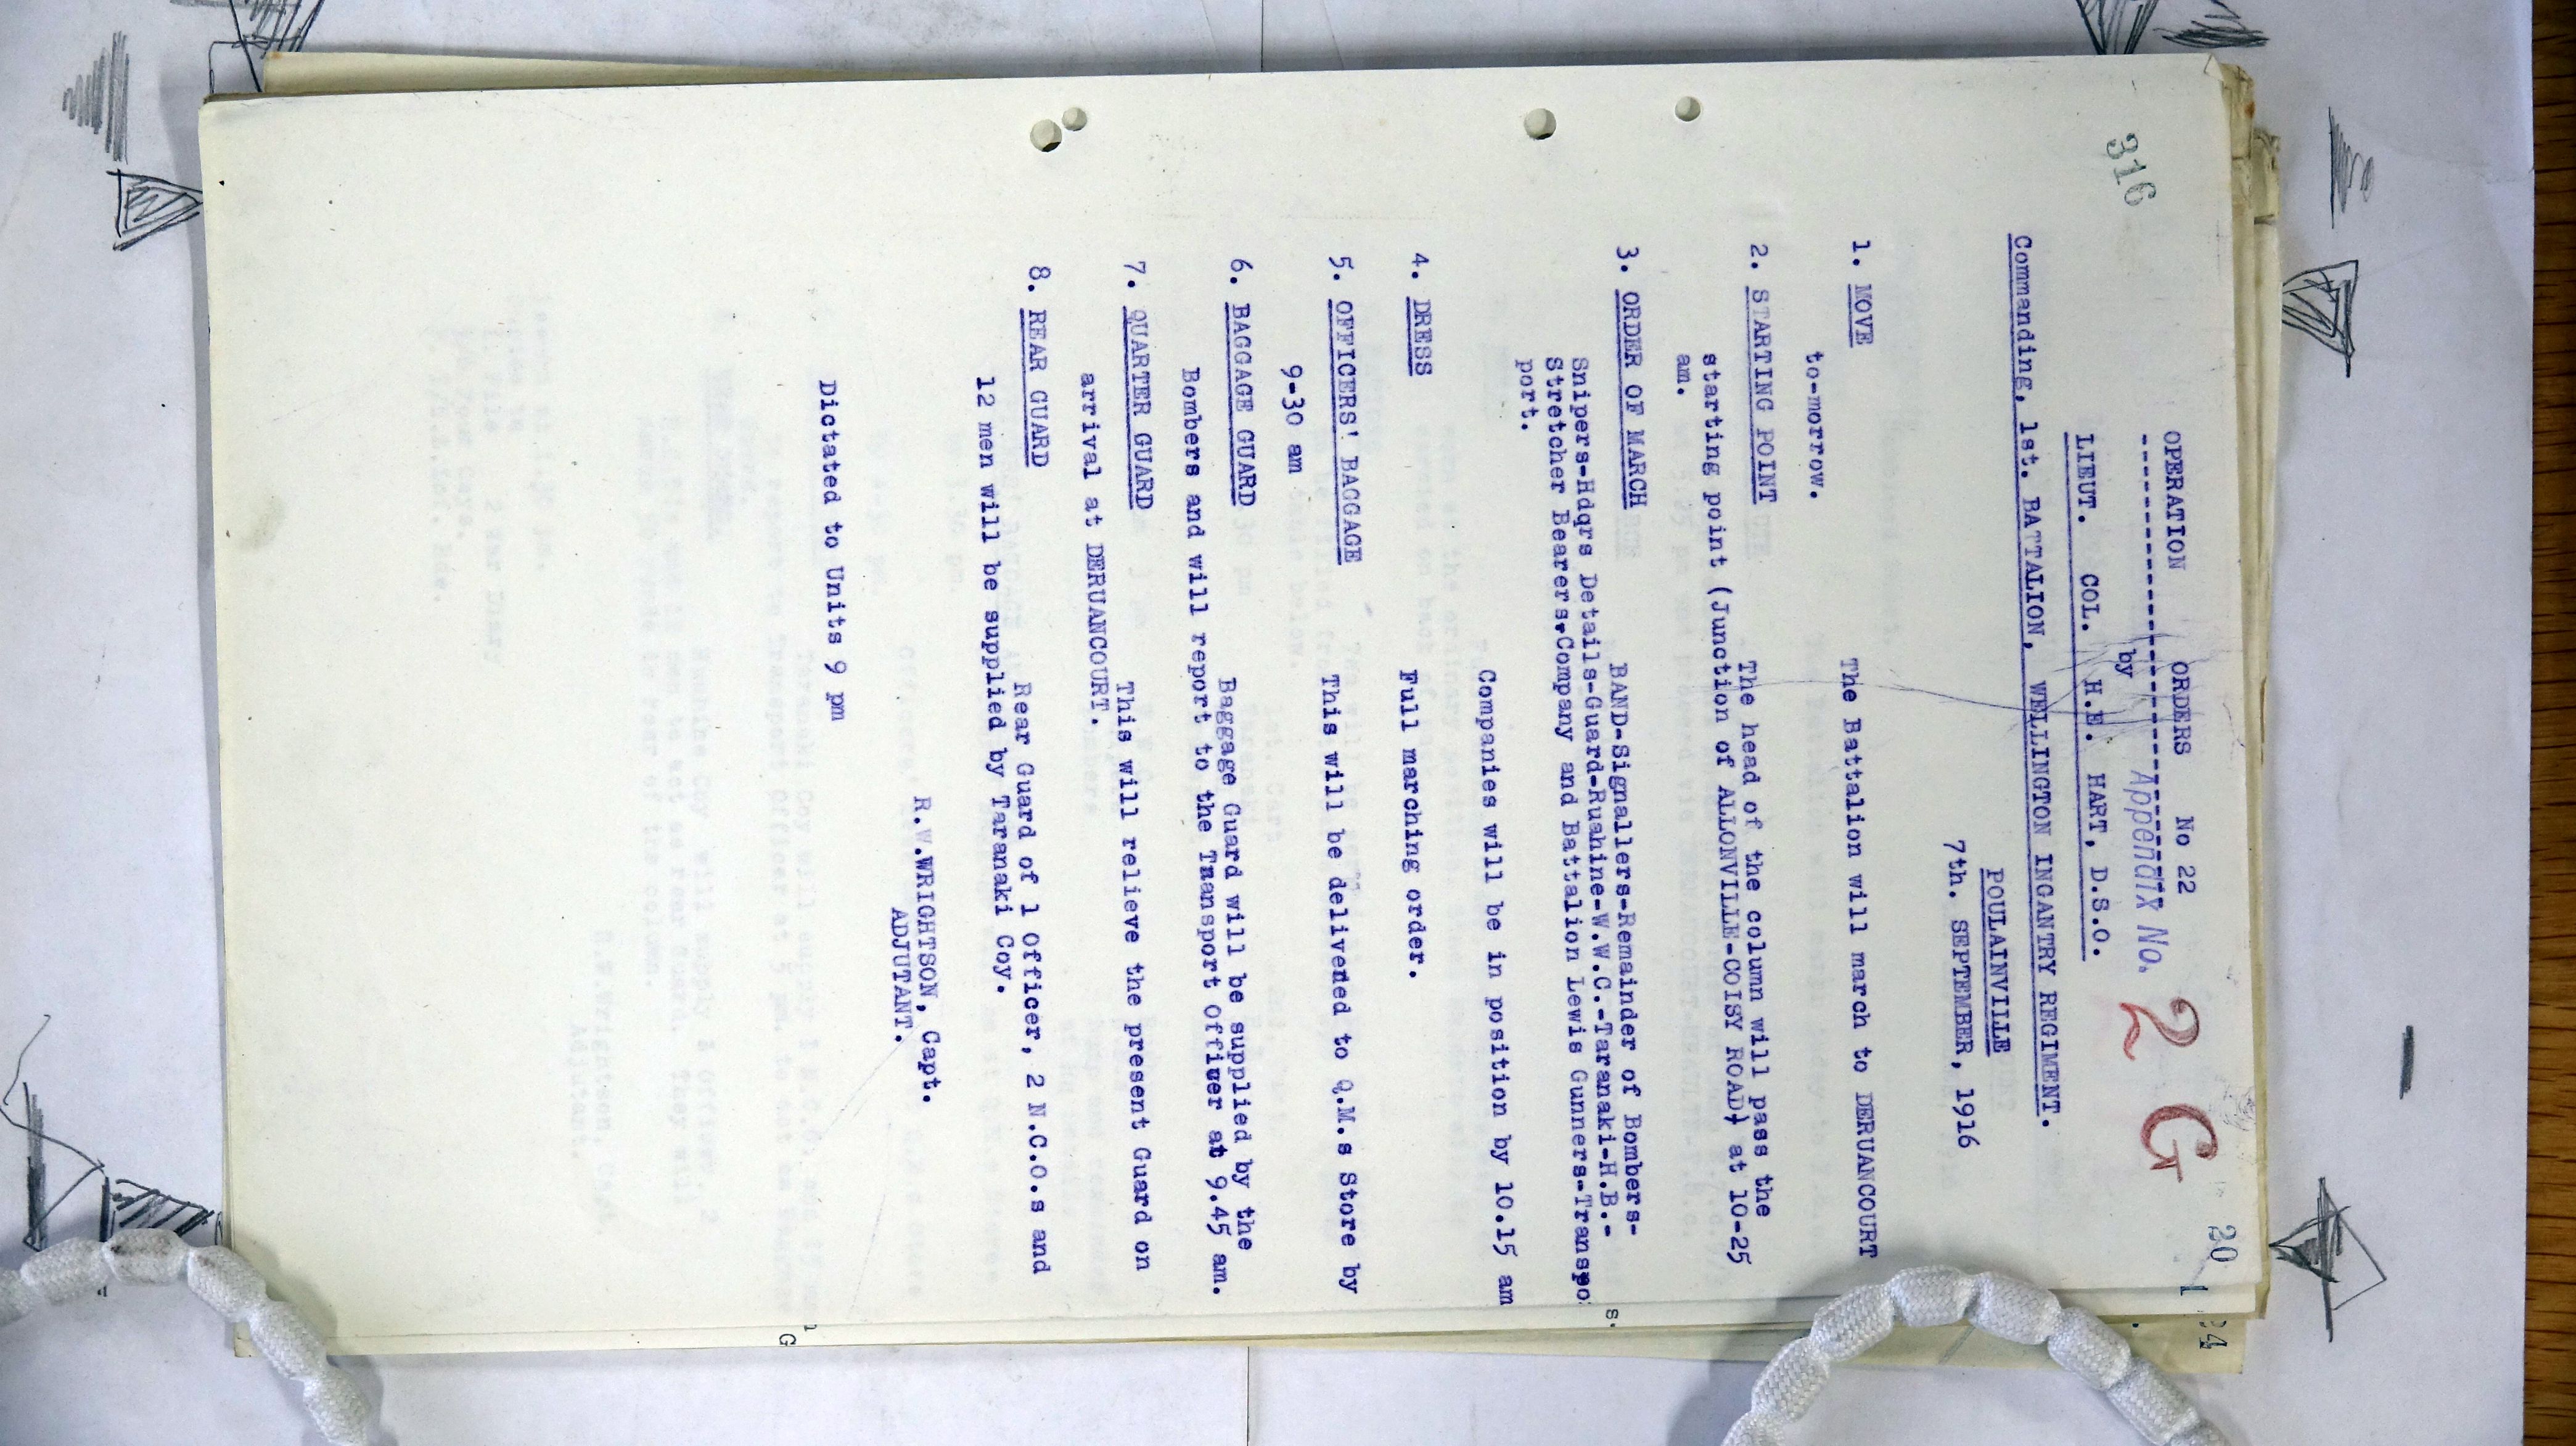 316
OPERATION ORDERS No 22
by
Appendix No. 2 G
LIEUT. COL. H.E. HART, D.S.O.
Commanding, 1st. BATTALION, WELLINGTON INGANTRY REGIMENT.
POULAINVILLE
7th. SEPTEMBER, 1916
1. MOVE The Battalion will march to DERUANCOURT
to-morrow.
2. STARTING POINT The head of the column will pass the
starting point (Junction of ALLONVILLE-COISY ROAD) at 10-25
am.
3. ORDER OF MARCH BAND-Signallers-Remainder of Bombers-
Snipers-Hdqrs Details-Guard-Ruahine-W.W.C.-Taranaki-H.B.-
Stretcher Bearers,Company and Battalion Lewis Gunners-Transpo
port.
Companies will be in position by 10.15 am
4. DRESS Full marching order.
5. OFFICERS' BAGGAGE This will be delivened to Q.M.s Store by
9-30 am
6. BAGGAGE GUARD Baggage Guard will be supplied by the
Bombers and will report to the Transport Officer at 9.45 am.
7. QUARTER GUARD This will relieve the present Guard on
arrival at DERUANCOURT.
8. REAR GUARD Rear Guard of 1 Officer, 2 N.C.O.s and
12 men will be supplied by Taranaki Coy.
R.W.WRIGHTSON, Capt.
ADJUTANT.
Dictated to Units 9 pm
20